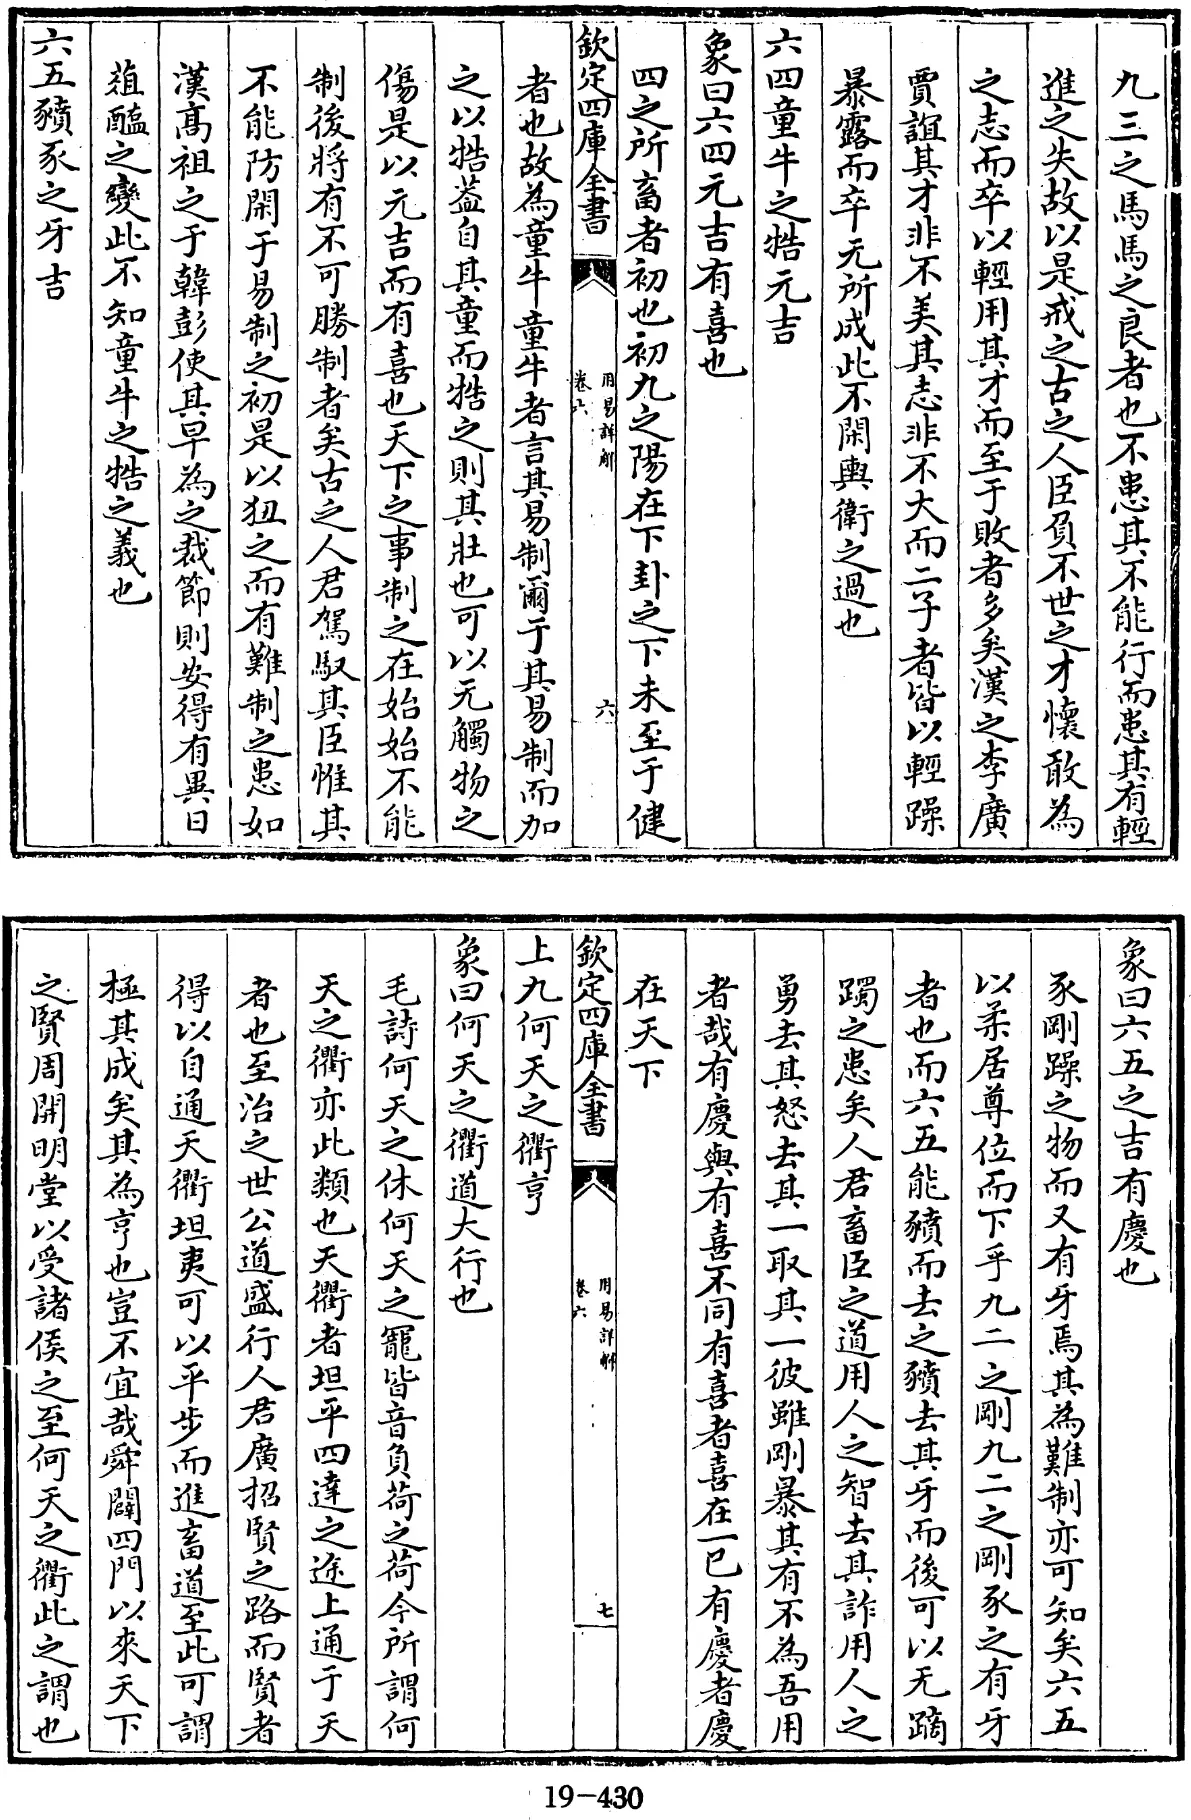 九三之馬馬之良者也不患其不能行而患其有輕
進之失故以是戒之古之人臣負不世之才懷敢為
之志而卒以輕用其才而至于敗者多矣漢之李廣
賈誼其才非不美其志非不大而二子者皆以輕躁
暴露而卒无所成此不閑輿衛之過也
六四童牛之牿元吉
象曰六四元吉有喜也
四之所畜者初也初九之陽在下卦之下未至于健
欽定四庫全書
用易詳解
卷六
六
者也故為童牛童牛者言其易制爾于其易制而加
之以牿葢自其童而牿之則其壯也可以无觸物之
傷是以元吉而有喜也天下之事制之在始始不能
制後將有不可勝制者矣古之人君駕馭其臣惟其
不能防閑于易制之初是以狃之而有難制之患如
漢高祖之于韓彭使其早為之裁節則安得有異日
葅醢之變此不知童牛之牿之義也
六五豶豕之牙吉
象曰六五之吉有慶也
豕剛躁之物而又有牙焉其為難制亦可知矣六五
以柔居尊位而下乎九二之剛九二之剛豕之有牙
者也而六五能豶而去之豶去其牙而後可以无蹢
躅之患矣人君畜臣之道用人之智去其詐用人之
勇去其怒去其一取其一彼雖剛暴其有不為吾用
者哉有慶與有喜不同有喜者喜在一已有慶者慶
在天下
欽定四庫全書
用易詳解
卷六
七
上九何天之衢亨
象曰何天之衢道大行也
毛詩何天之休何天之寵皆音負荷之荷今所謂何
天之衢亦此類也天衢者坦平四達之途上通于天
者也至治之世公道盛行人君廣招賢之路而賢者
得以自通天衢坦夷可以平步而進畜道至此可謂
極其成矣其為亨也豈不宜哉舜闢四門以來天下
之賢周開明堂以受諸侯之至何天之衢此之謂也
19-430